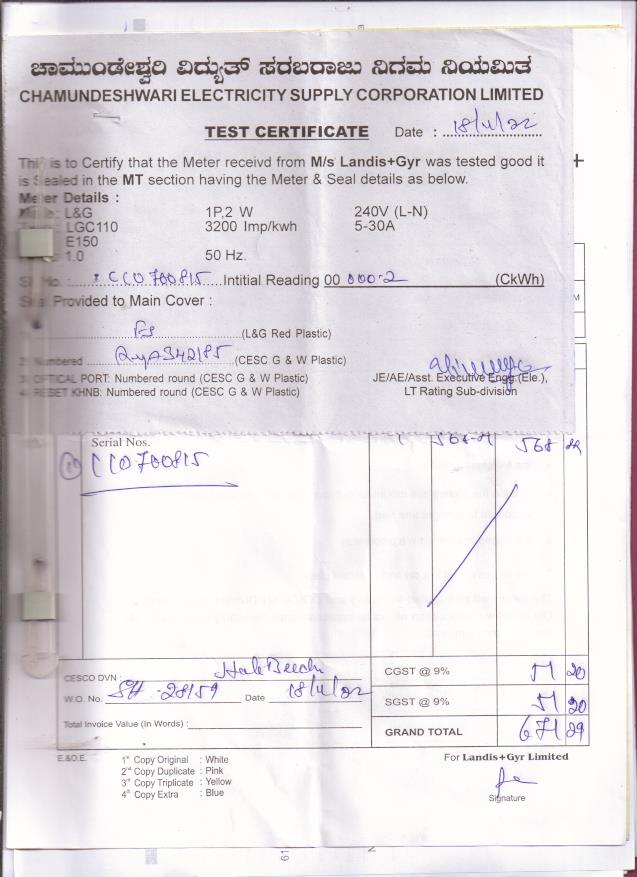 ಚಾಮುಂಡೇಶ್ವರಿ ವಿದ್ಯುತ್ ಸರಬರಾಜು ನಿಗಮ ನಿಯಮಿತ
CHAMUNDESHWARI ELECTRICITY SUPPLY CORPORATION LIMITED
TEST CERTIFICATE Date :
is to Certify that the Meter receivd from M/s Landis+Gyr was tested good it
is Sealed in the MT section having the Meter & Seal details as below.
Meter Details :
: L&G 1P,2 W 240V (L-N)
LGC110 3200 Imp/kwh 5-30A
E150
: 1.0 50 Hz.
No. : CC0700815 Intitial Reading 00 000-2 (CkWh)
Seal Provided to Main Cover :
(L&G Red Plastic)
2. Numbered (CESC G & W Plastic)
3. OPTICAL PORT: Numbered round (CESC G & W Plastic) JE/AE/Asst. Executive Engg.(Ele.),
4. RESET KHNB: Numbered round (CESC G & W Plastic) LT Rating Sub-division
Serial Nos. 568
CC0700815
CESCO DVN : CGST @ 9% 51 20
W.O. No. 28159 Date
SGST @ 9% 51 20
Total Invoice Value (In Words) : GRAND TOTAL 671 29
E.&O.E. 1st Copy Original : White For Landis+Gyr Limited
2nd Copy Duplicate : Pink
3rd Copy Triplicate : Yellow
4th Copy Extra : Blue
Signature
61